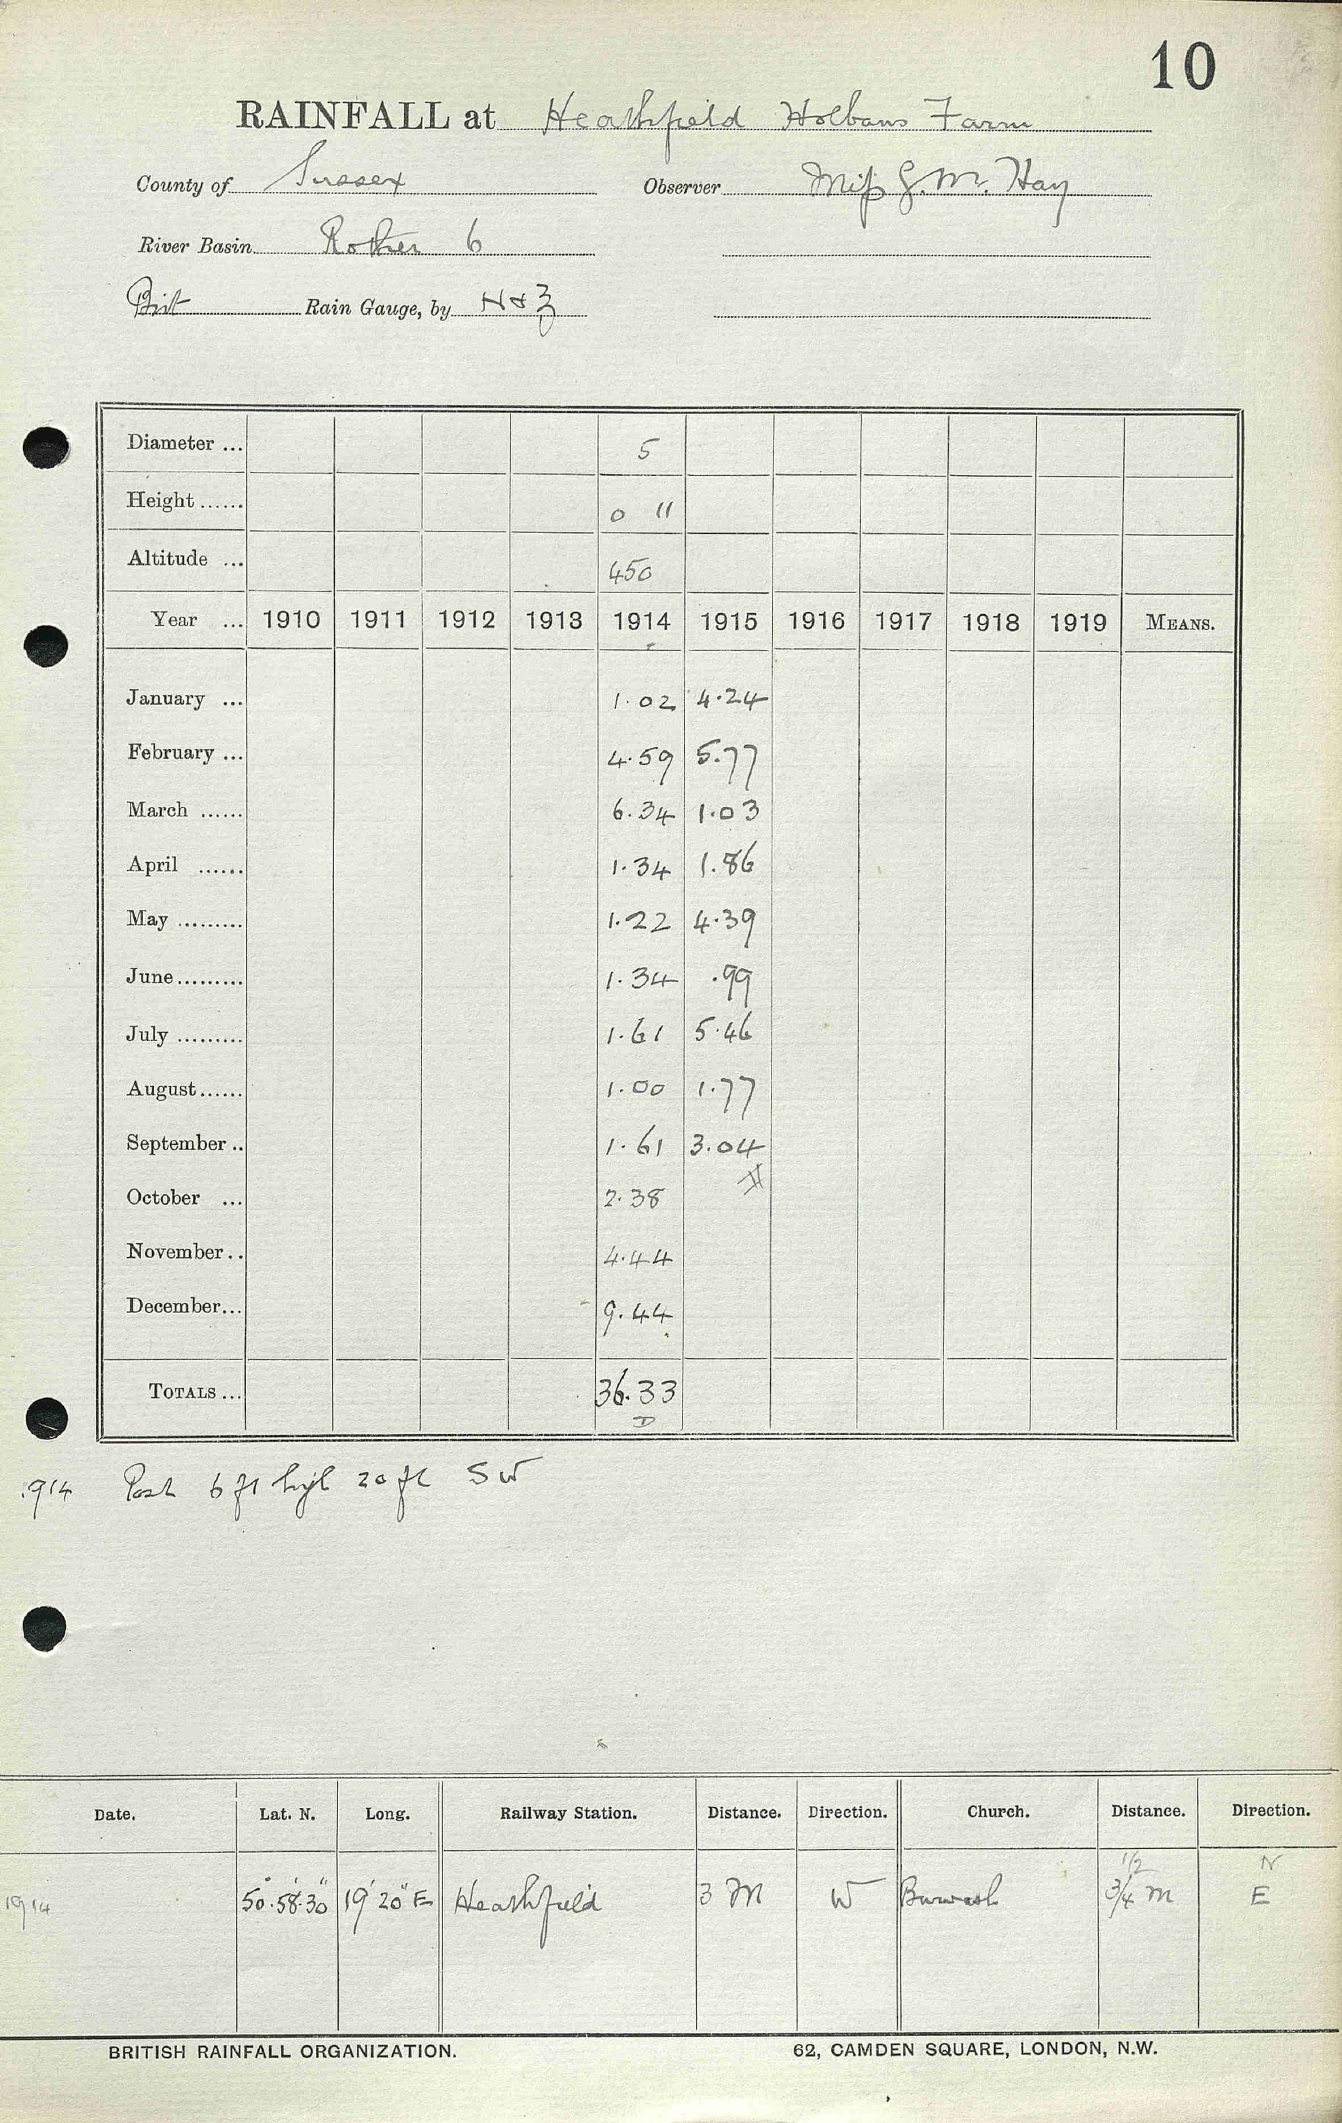 10
RAINFALL at Heathfield Holbans Farm
County of Sussex Observer Miss G. M. Hay
River Basin Rother 6
Brit Rain Gauge, by N & Z
Diameter ... 5
Height ...... 0 11
Altitude ... 450
Year ... 1910 1911 1912 1913 1914 1915 1916 1917 1918 1919 MEANS.
January ... 1.02 4.24
February ... 4.59 5.77
March ...... 6.34 1.03
April ...... 1.34 1.86
May ......... 1.22 4.39
June ......... 1.34 .99
July ......... 1.61 5.46
August ...... 1.00 1.77
September .. 1.61 3.04
October ... 2.38
November .. 4.44
December ... 9.44
TOTALS ... 36.33
D
1914 Post 6 ft high 20 ft SW
Date. Lat. N. Long. Railway Station. Distance. Direction. Church. Distance. Direction.
1/2 N
1914 50° 58' 30" 19' 20" E Heathfield 3 M W Burwash 3/4 m E
BRITISH RAINFALL ORGANIZATION. 62, CAMDEN SQUARE, LONDON, N.W.